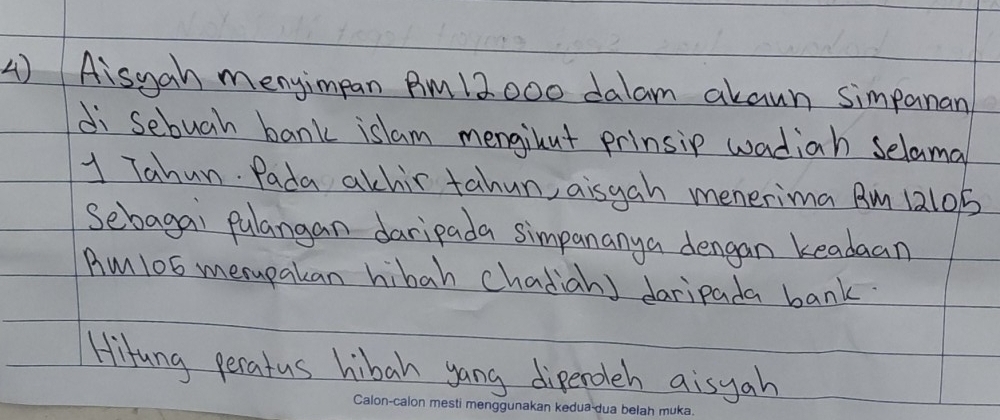 4) Aisyah menyimpan RM12000 dalam akaun simpanan
di sebuah bank islam mengikut prinsip wadiah selama
1 Tahun. Pada akhir tahun, aisyah menerima RM 12105
sebagai pulangan daripada simpananya dengan keadaan
RM105 merupakan hibah (hadiah) daripada bank.
Hitung peratus hibah yang diperoleh aisyah
Calon-calon mesti menggunakan kedua-dua belah muka.